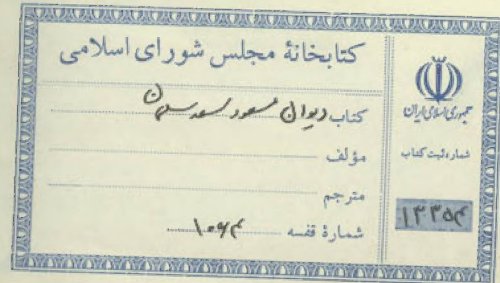 کتابخانهٔ مجلس شورای اسلامی
کتاب دیوان مسعود سعد سلمان
مؤلف
مترجم
شمارهٔ قفسه ۱۰۶۴
جمهوری اسلامی ایران
شماره ثبت کتاب
۱۳۳۵۴